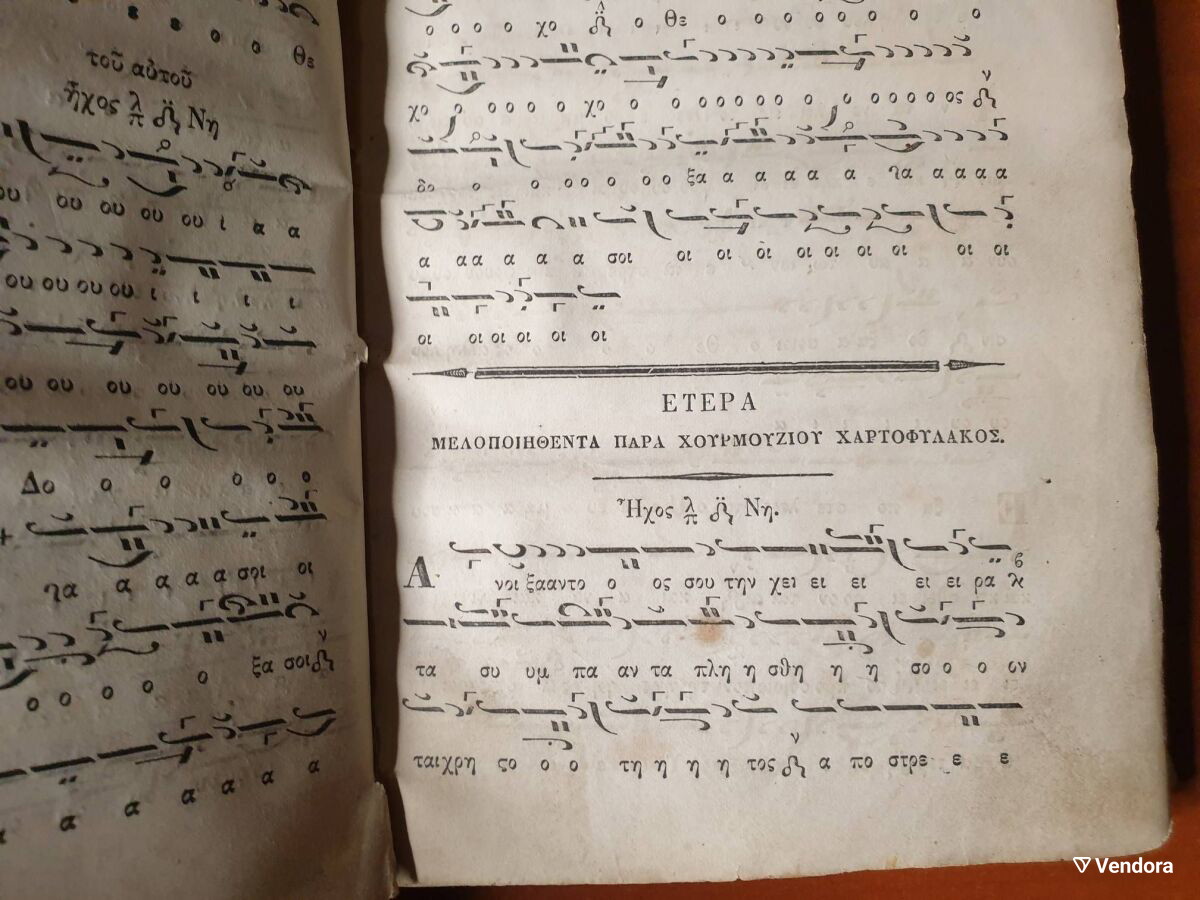 ε ε ο ο θε
τοῦ αὐτοῦ
ἦχος λ π Νη
ου ου ου ου ου ι α α
ου ου ου ου ι ι ι ι
ου ου ου ου ου ου ου
Δο ο ο ο ο ο
γα α α α α σοι οι
ο ο ο ο ο ξα σοι
α α α α α α
ο ο ο ο χο ο θε ο ο ο ο ο ο
χο ο ο ο ο ο χο ο ο ο ο ο ο ο ο ο ο ο ο ο ο ος
δο ο ο ο ο ο ο ο ξα α α α α α γα α α α α
α α α α α α σοι οι οι οι οι οι οι οι οι οι
οι οι οι οι οι οι
ΕΤΕΡΑ
ΜΕΛΟΠΟΙΗΘΕΝΤΑ ΠΑΡΑ ΧΟΥΡΜΟΥΖΙΟΥ ΧΑΡΤΟΦΥΛΑΚΟΣ.
Ἦχος λ π Νη.
Α νοι ξααντο ο ος σου την χει ει ει ει ει ρα
τα συ υμ πα αν τα πλη η σθη η η σο ο ο ον
ταιχρη ςο ο ο τη η η η τος α πο στρε ε ε
Vendora